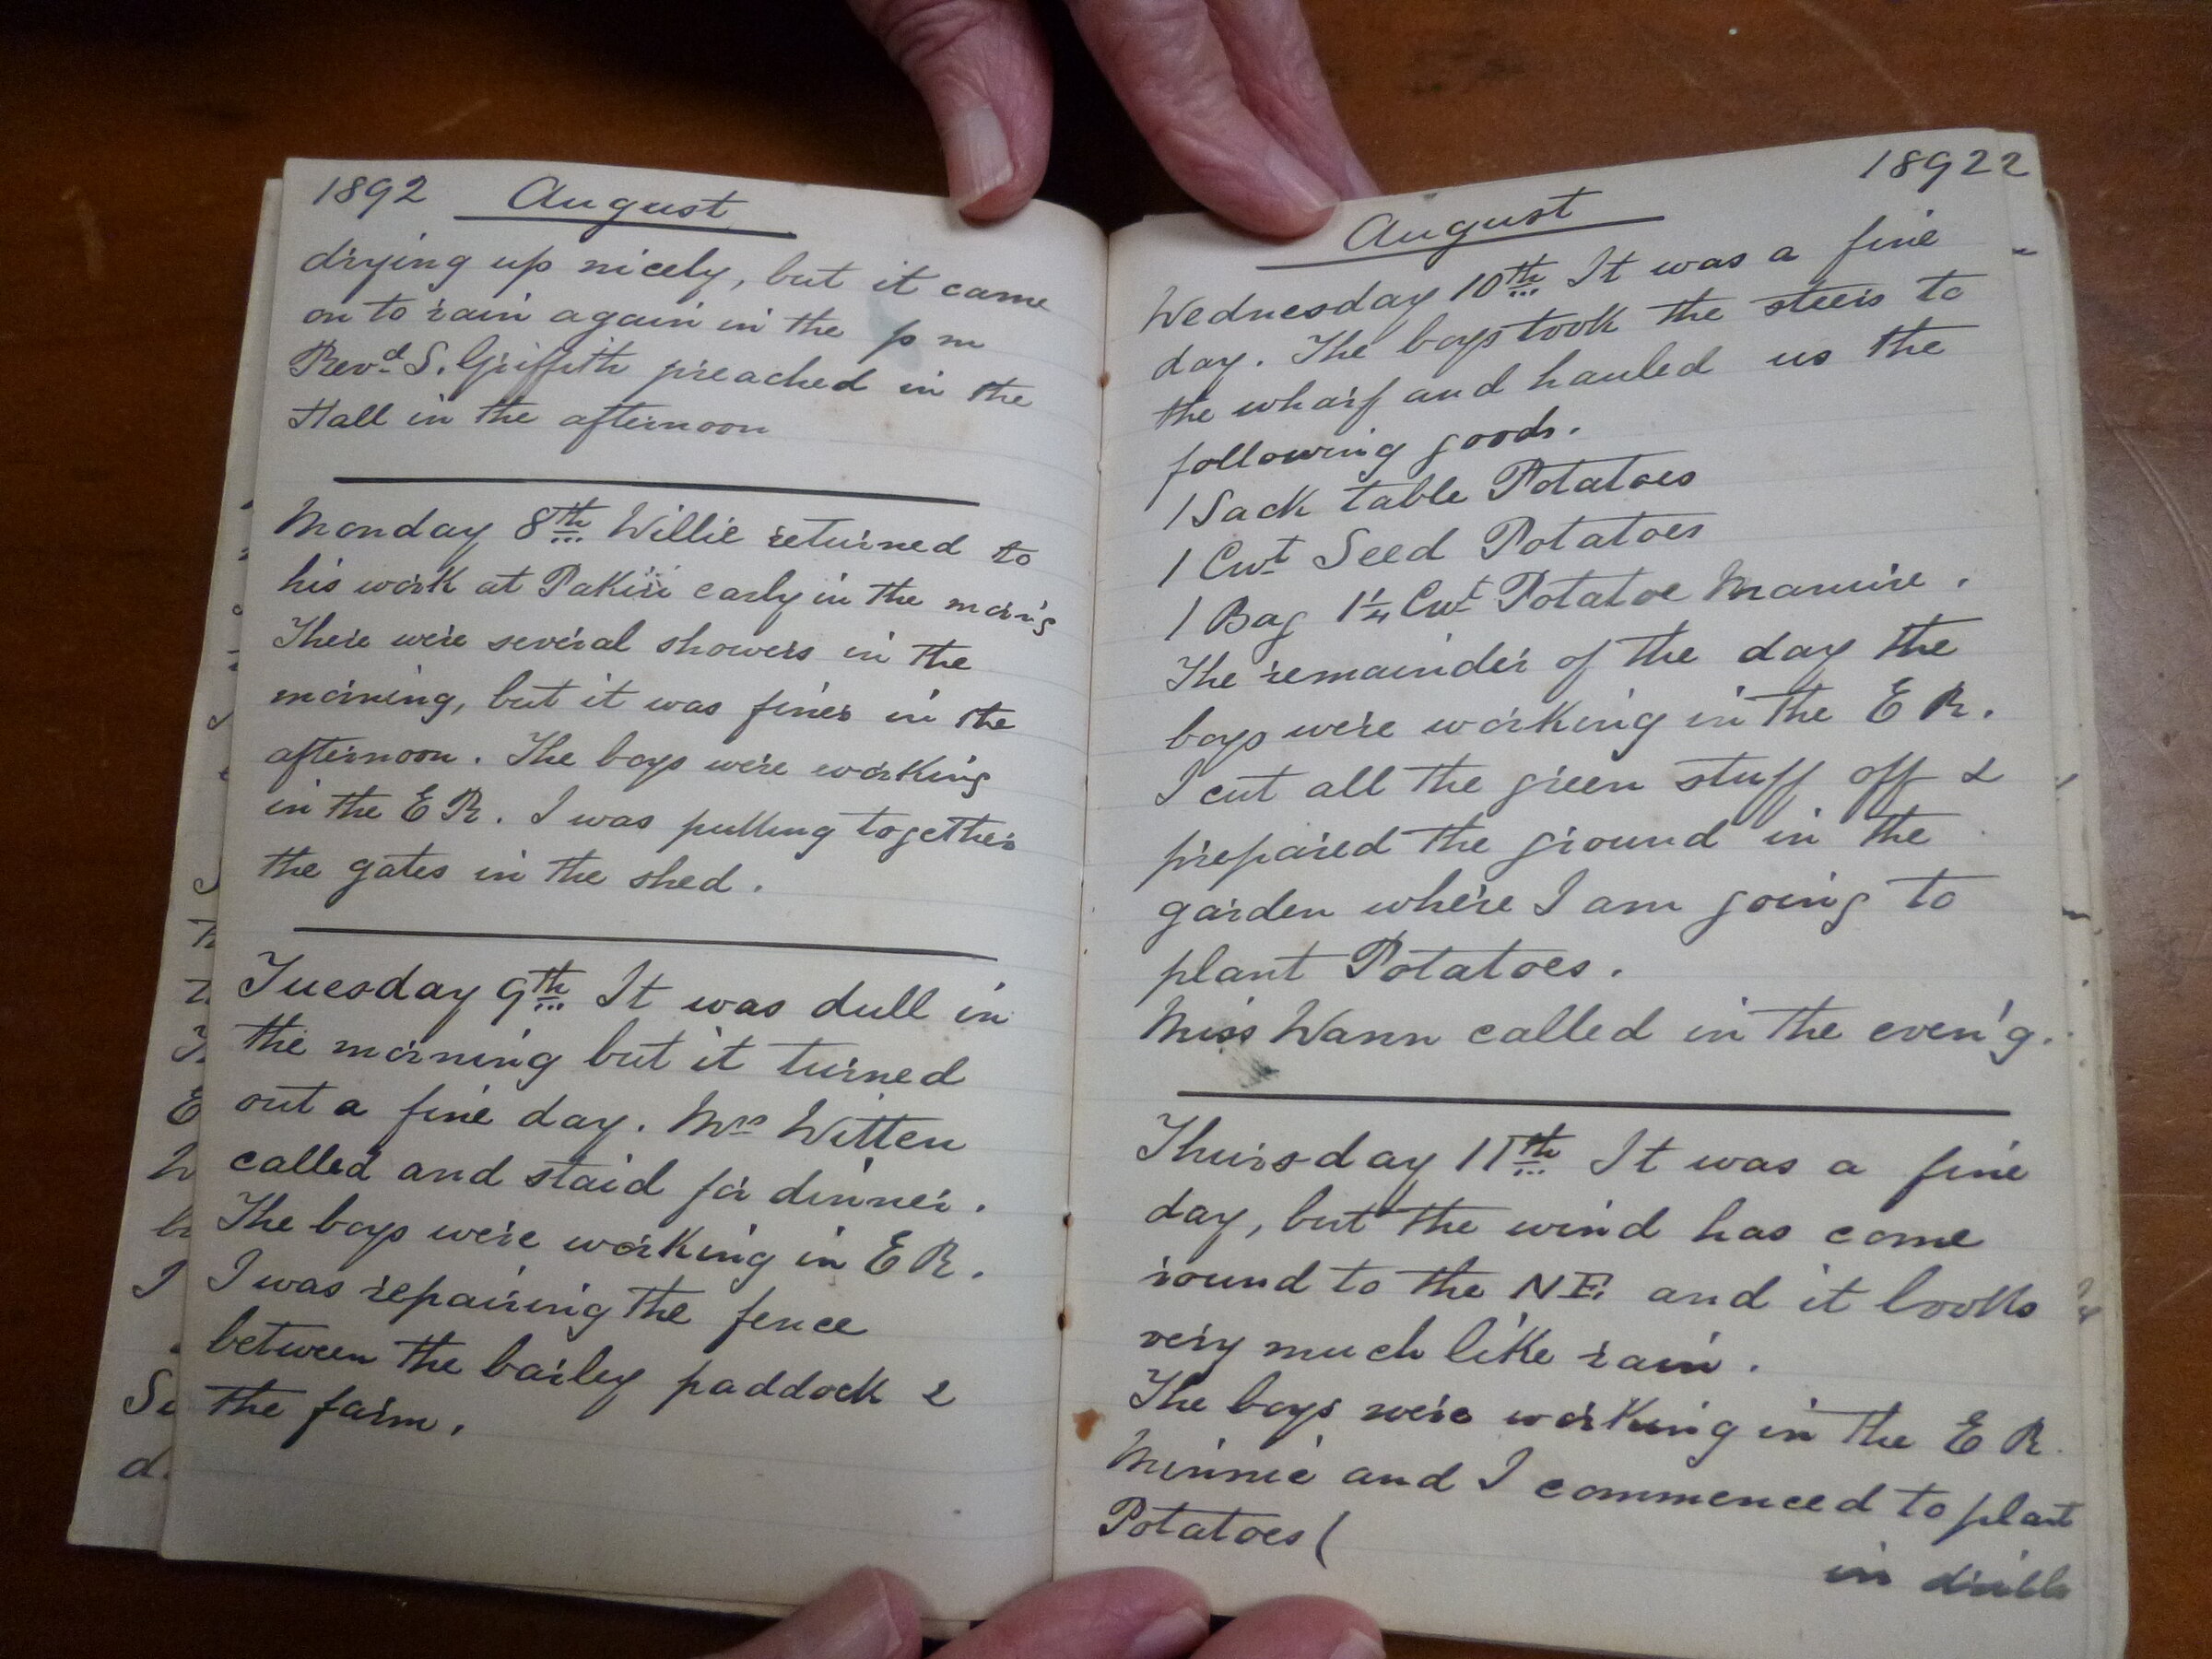 1892 August
drying up nicely, but it came
on to rain again in the p m
Revd. S. Griffith preached in the
Hall in the afternoon
Monday 8th Willie returned to
his work at Pakiri early in the morn'g
There were several showers in the
morning, but it was finer in the
afternoon. The boys were working
in the E R. I was putting together
the gates in the shed.
Tuesday 9th It was dull in
the morning but it turned
out a fine day. Mrs Witten
called and staid for dinner.
The boys were working in E R.
I was repairing the fence
between the barley paddock &
the farm.
August 18922
Wednesday 10th It was a fine
day. The boys took the steers to
the wharf and hauled us the
following goods.
1 Sack table Potatoes
1 Cwt Seed Potatoes
1 Bag 1¼ Cwt Potatoe Manure.
The remainder of the day the
boys were working in the E R.
I cut all the green stuff off &
prepared the ground in the
garden where I am going to
plant Potatoes.
Miss Wann called in the even'g.
Thursday 11th It was a fine
day, but the wind has come
round to the NE. and it looks
very much like rain.
The boys were working in the E R
Minnie and I commenced to plant
Potatoes (
in